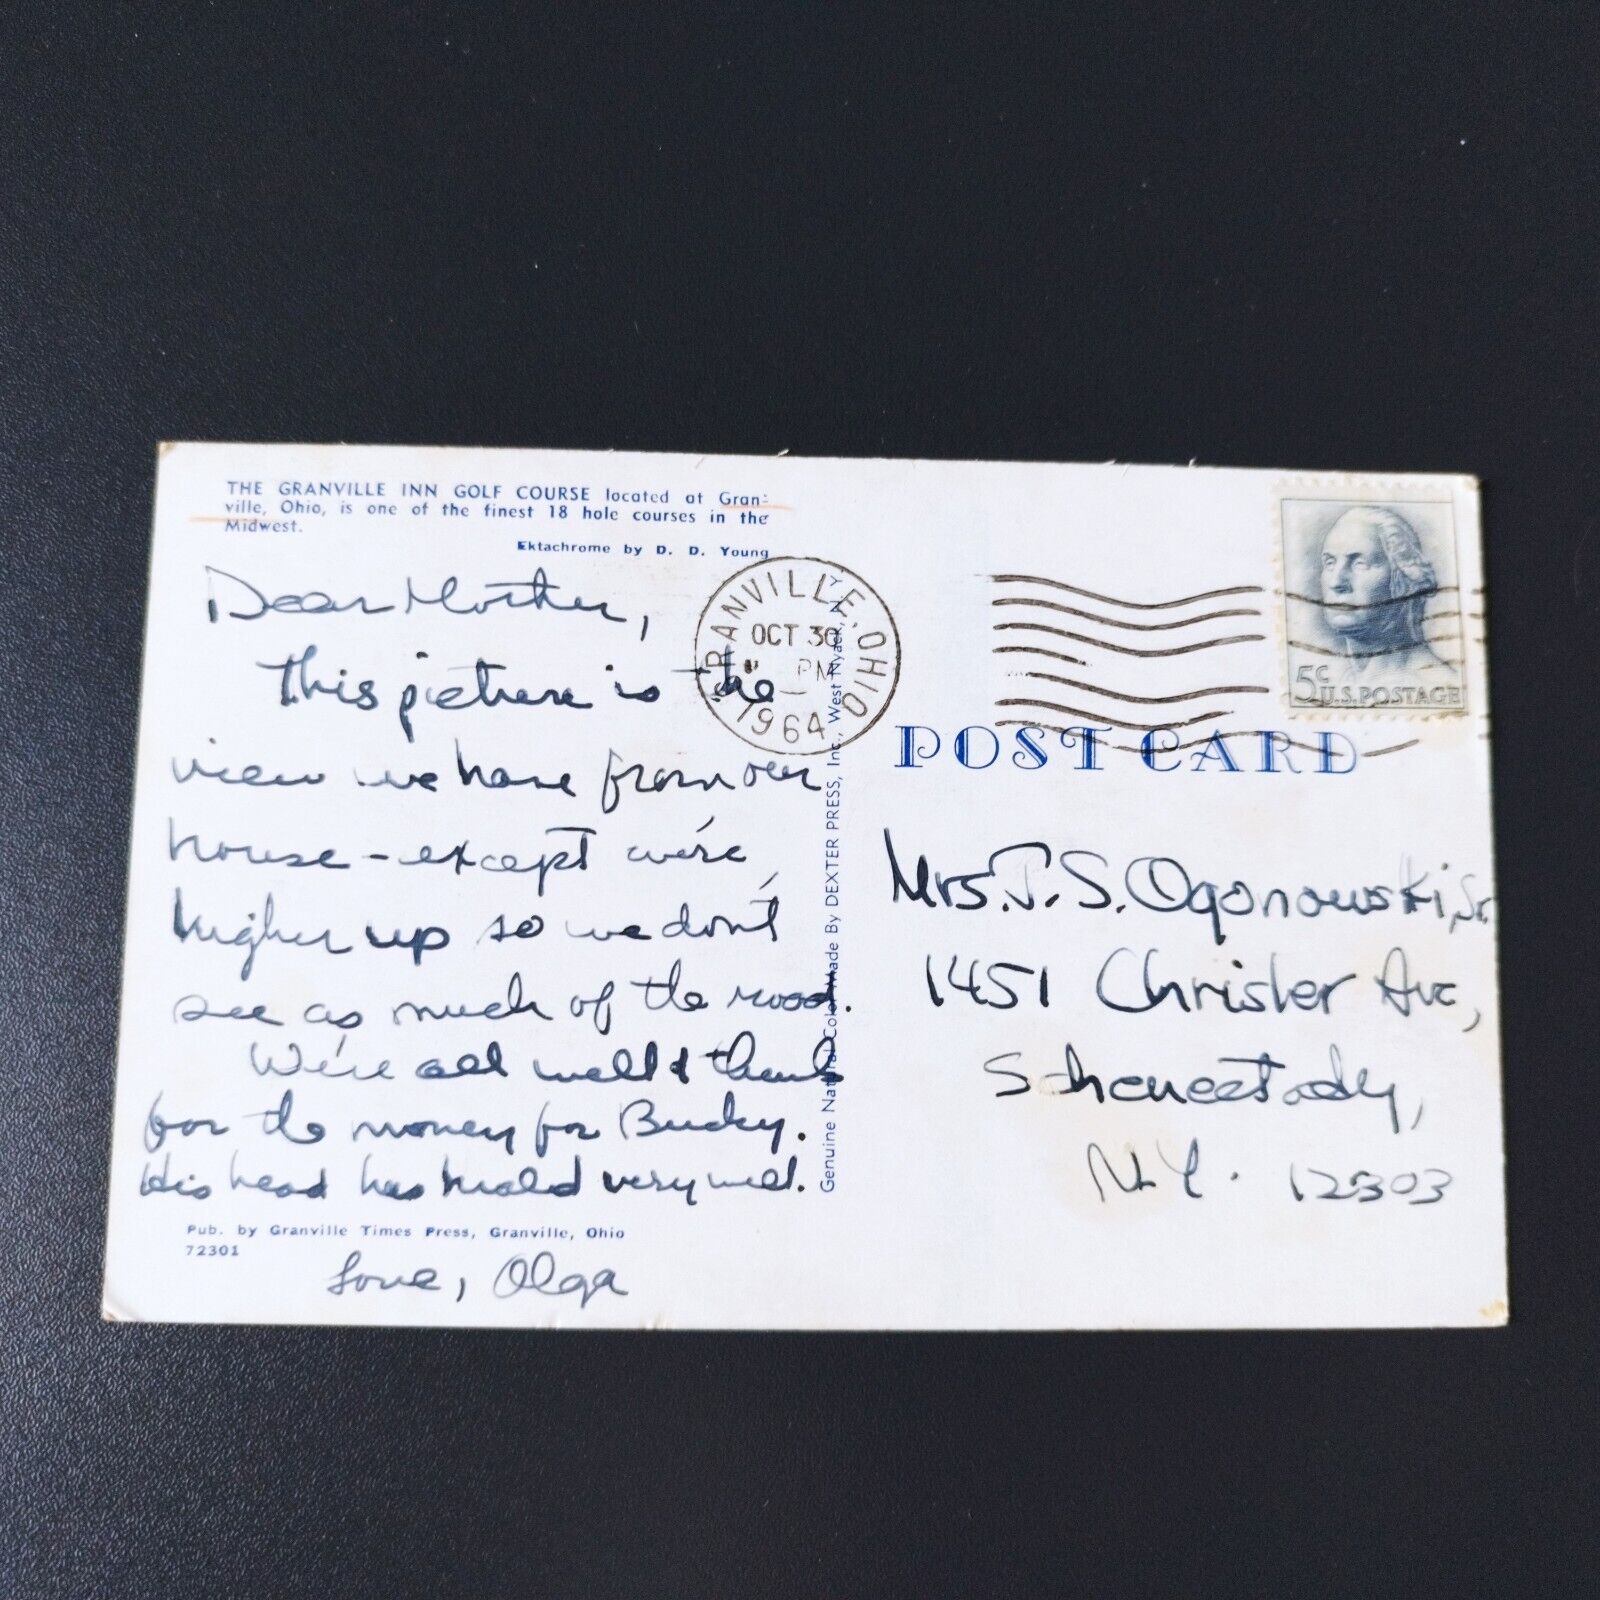 THE GRANVILLE INN GOLF COURSE located at Gran-
ville, Ohio, is one of the finest 18 hole courses in the
Midwest.
Ektachrome by D. D. Young
Dear Mother,
This picture is the
view we have from our
house - except we're
higher up so we don't
see as much of the road.
We're all well & thanks
for the money for Bucky.
His head has healed very well.
Pub. by Granville Times Press, Granville, Ohio
72301
Love, Olga
Genuine Natural Color Made By DEXTER PRESS, Inc., West Nyack, N. Y.
GRANVILLE, OHIO
OCT 30
PM
1964
5c
U.S. POSTAGE
POST CARD
Mrs. J. S. Ogonowski, Sr.
1451 Chrisler Ave,
Schenectady,
N.Y. 12303